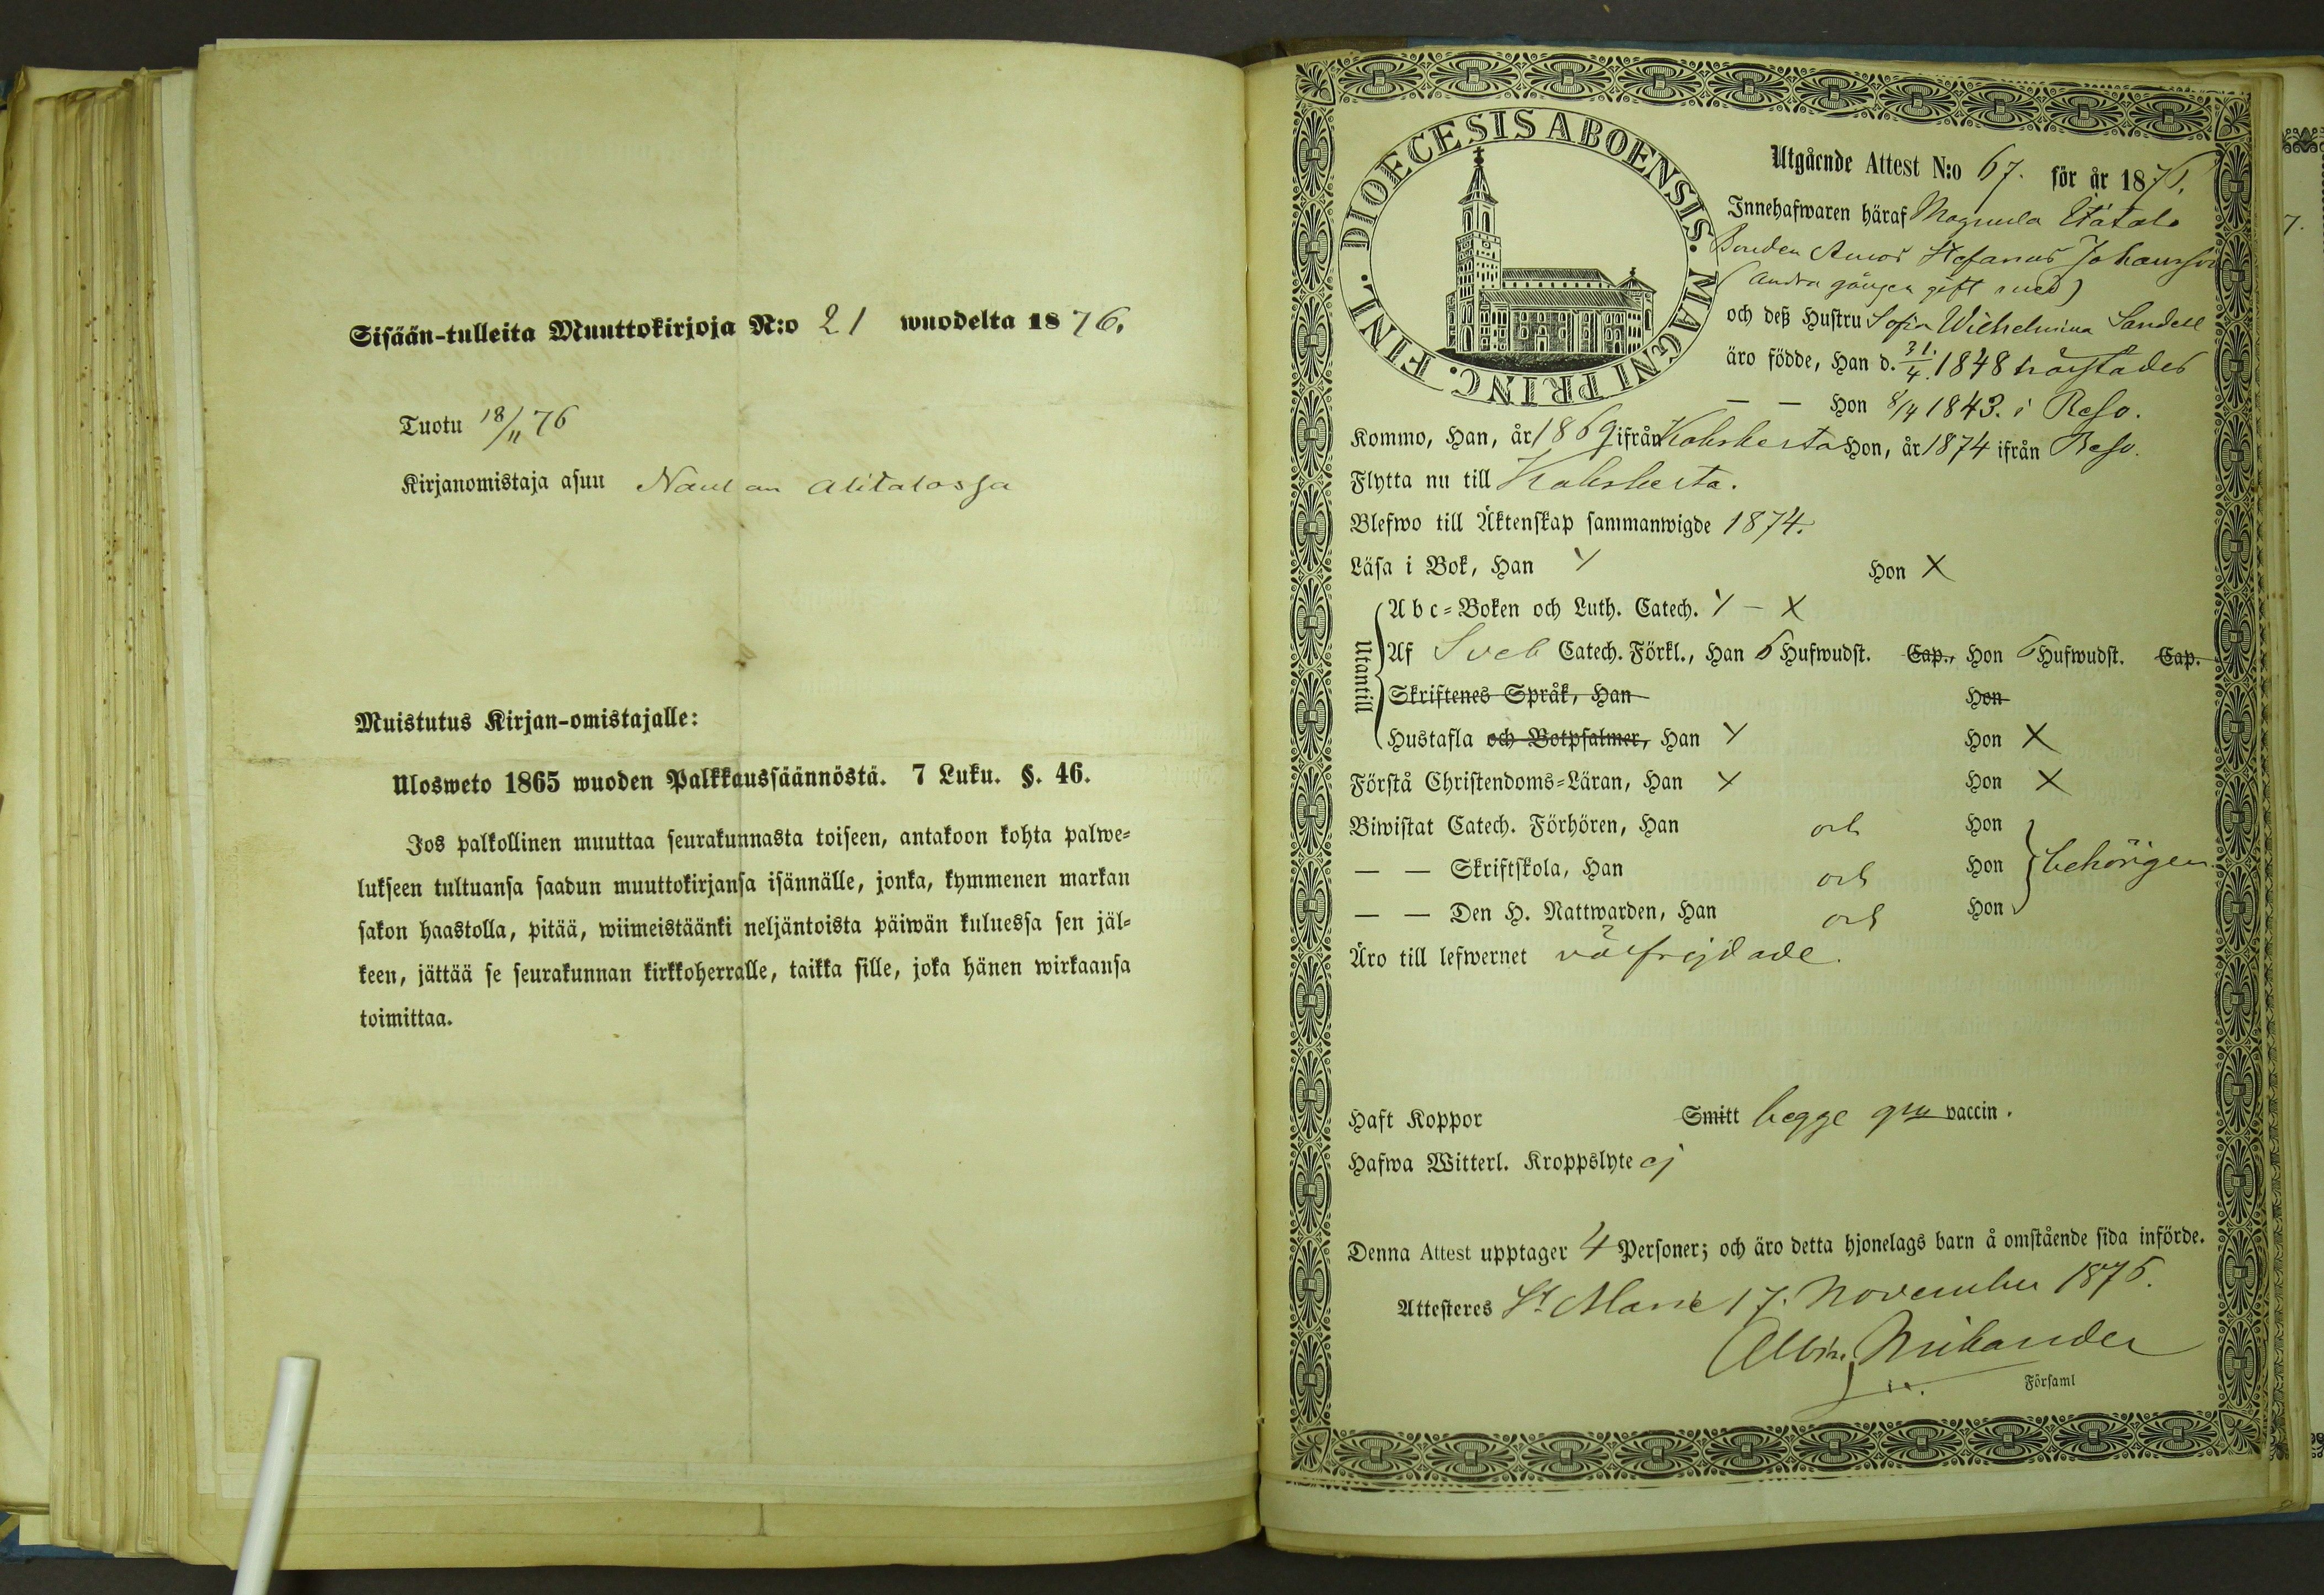 Sisään-tulleita Muuttokirjoja N:o 21 wuodelta 1876.
Tuotu 18/11 76
Kirjanomistaja asuu Naulan Alitalossa
Muistutus Kirjan-omistajalle:
Ulosweto 1865 wuoden Palkkaussäännöstä. 7 Luku. §. 46.
Jos palkollinen muuttaa seurakunnasta toiseen, antakoon kohta palwe-
lukseen tultuansa saadun muuttokirjansa isännälle, jonka, kymmenen markan
sakon haastolla, pitää, wiimeistäänki neljäntoista päiwän kuluessa sen jäl-
keen, jättää se seurakunnan kirkkoherralle, taikka sille, joka hänen wirkaansa
toimittaa.
DIOECESIS ABOENSIS. MAGNI PRINC. FINL.
Utgående Attest N:o 67. för år 1876.
Innehafwaren häraf Magnula Ytätalo
Bonden Amos Stefanus Johansson
(Andra gången gift med)
och deß Hustru Sofia Wilhelmina Sandell
äro födde, Han d. 31/4 1848 härstädes
— — Hon 8/4 1843. i Reso.
Kommo, Han, år 1869 ifrån Kakskerta Hon, år 1874 ifrån Reso.
Flytta nu till Kakskerta.
Blefwo till Äktenskap sammanwigde 1874.
Läsa i Bok, Han Hon X
Utantill
A b c-Boken och Luth. Catech. – X
Af Sveb Catech. Förkl., Han 6 Hufwudst. Cap., Hon 6 Hufwudst. Cap.
Skriftenes Språk, Han Hon
Hustafla och Botpsalmer, Han Hon X
Förstå Christendoms-Läran, Han Hon X
Biwistat Catech. Förhören, Han och Hon
— — Skriftskola, Han och Hon behörigen
— — Den H. Nattwarden, Han och Hon
Äro till lefwernet välfrejdade.
Haft Koppor Smitt begge vaccin.
Hafwa Witterl. Kroppslyte ej
Denna Attest upptager 4 Personer; och äro detta hjonelags barn å omstående sida införde.
Attesteres St Marie 17. November 1876.
Albin Mikander
Församl